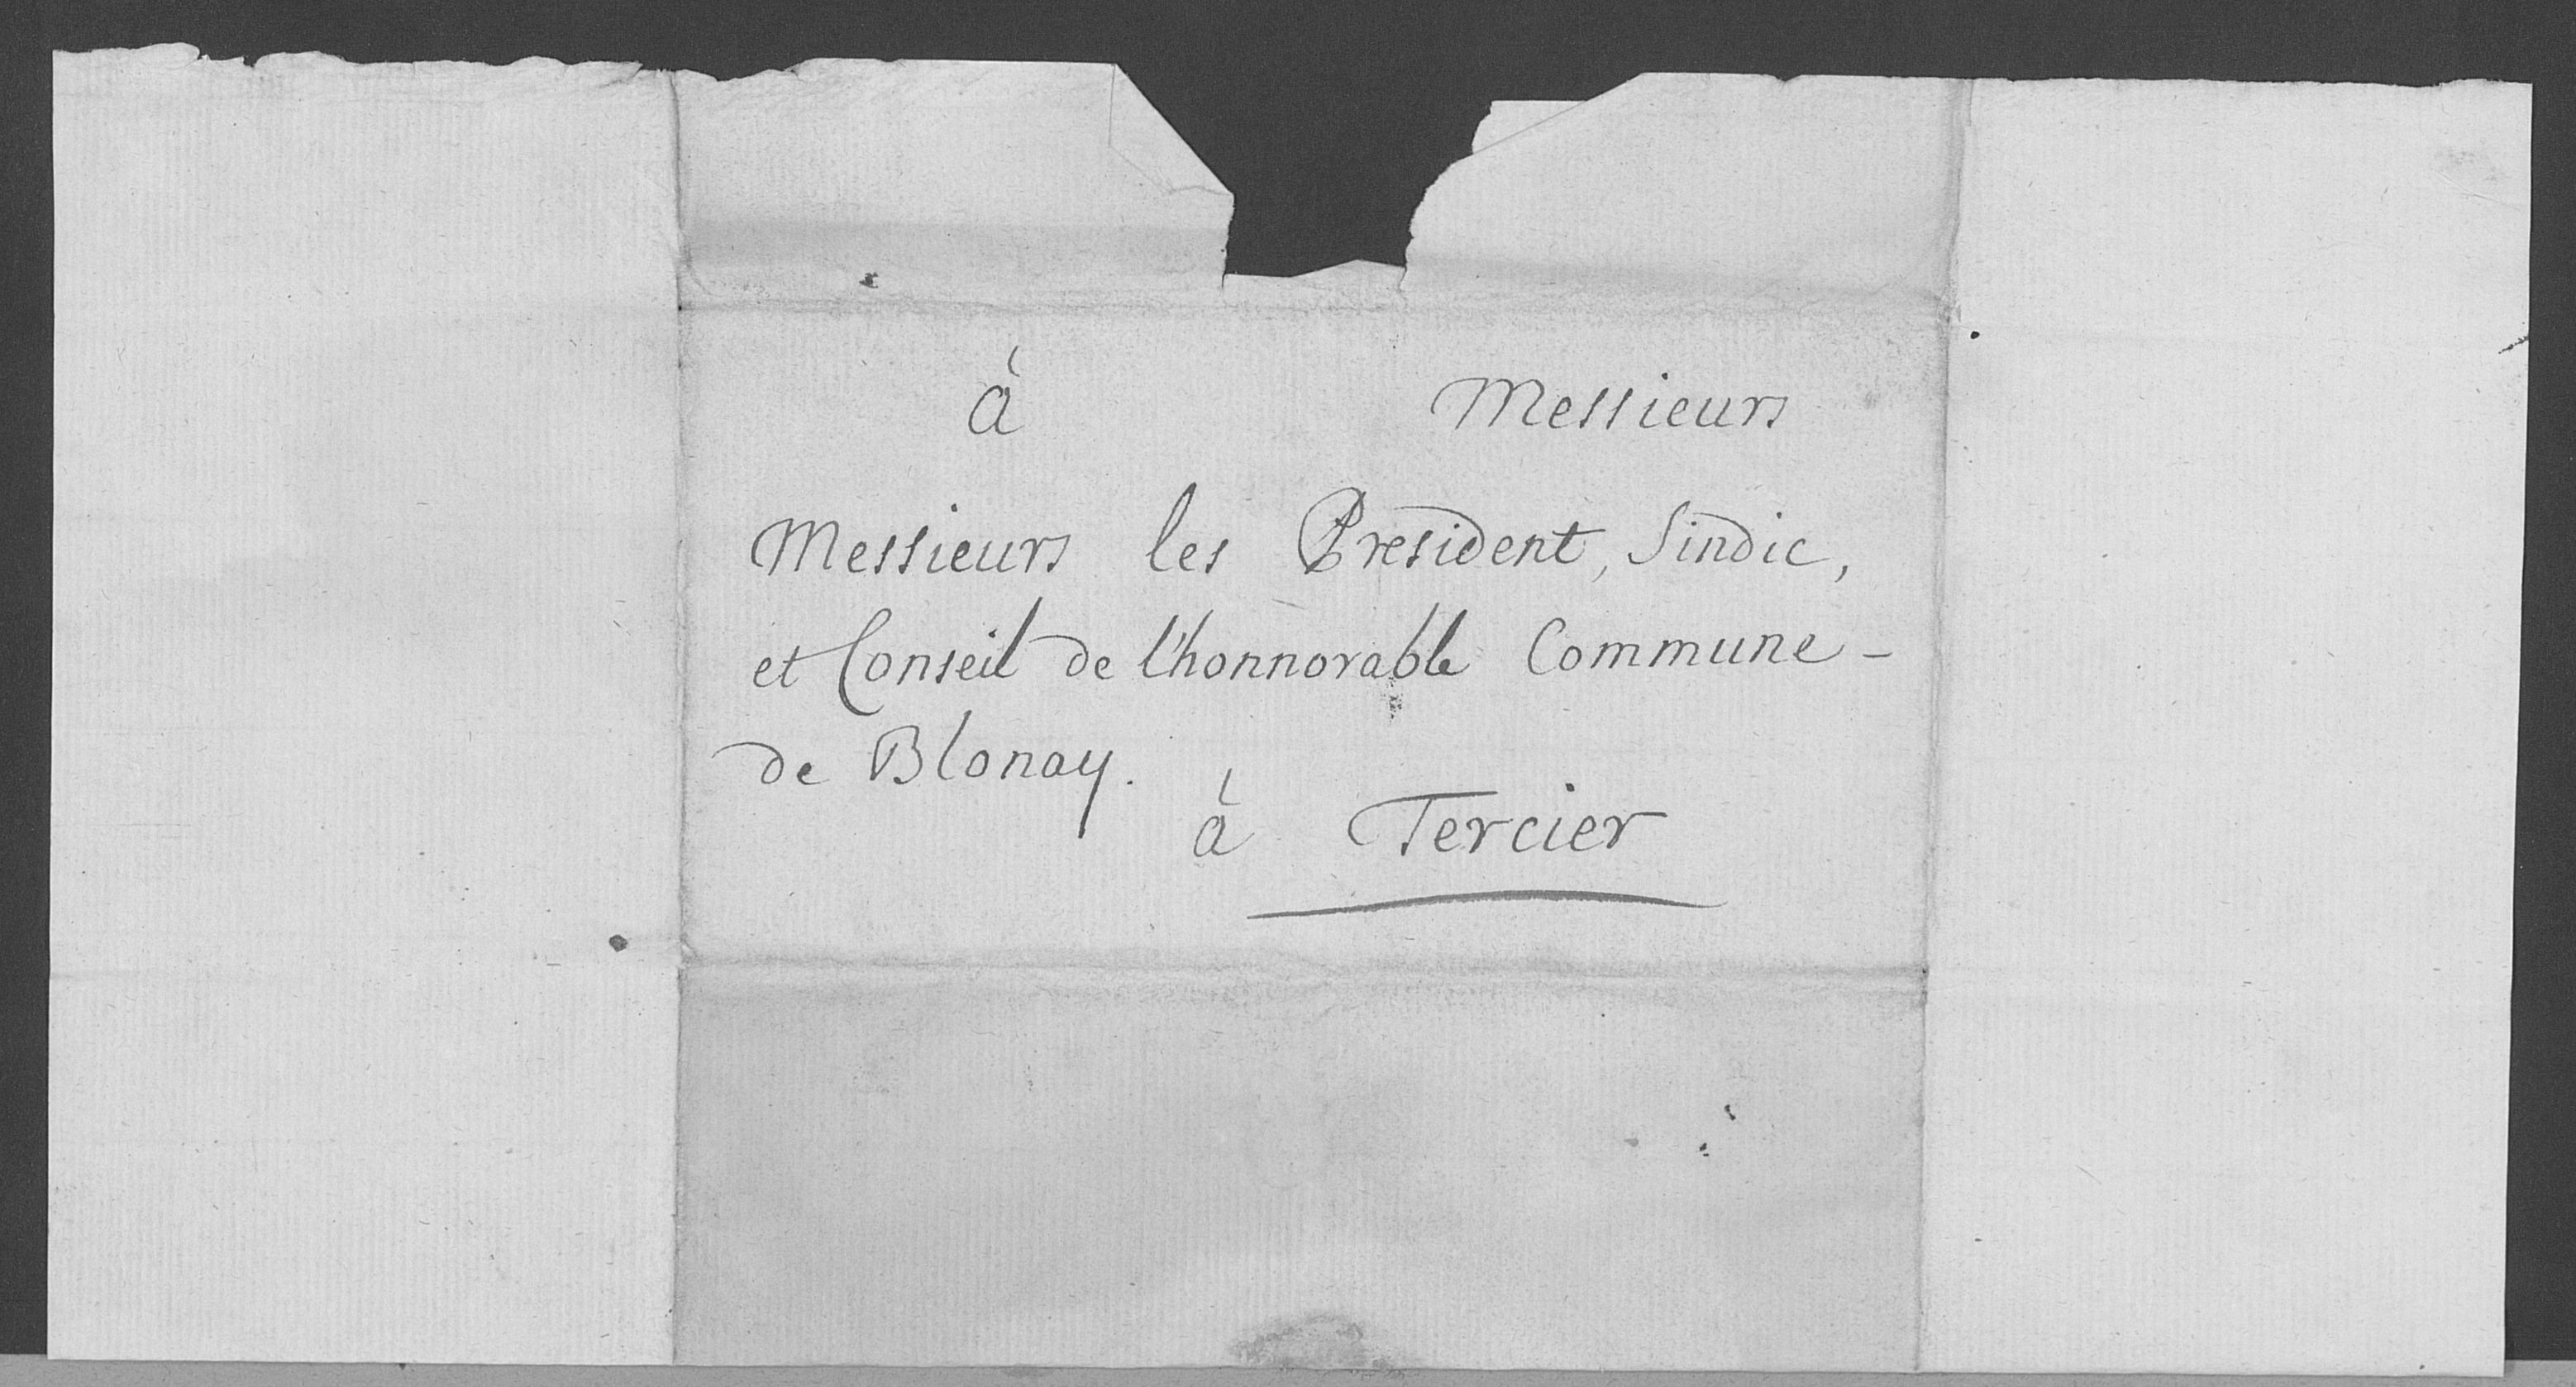 à Messieurs
Messieurs les President, Sindic,
et Conseil de l'honnorable Commune -
de Blonay.
à Tercier